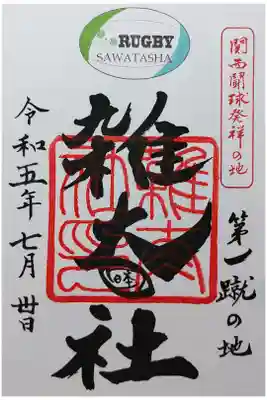 RUGBY
SAWATASHA
関西闘球発祥の地
第一蹴の地
雑太社
日本
令和五年七月日